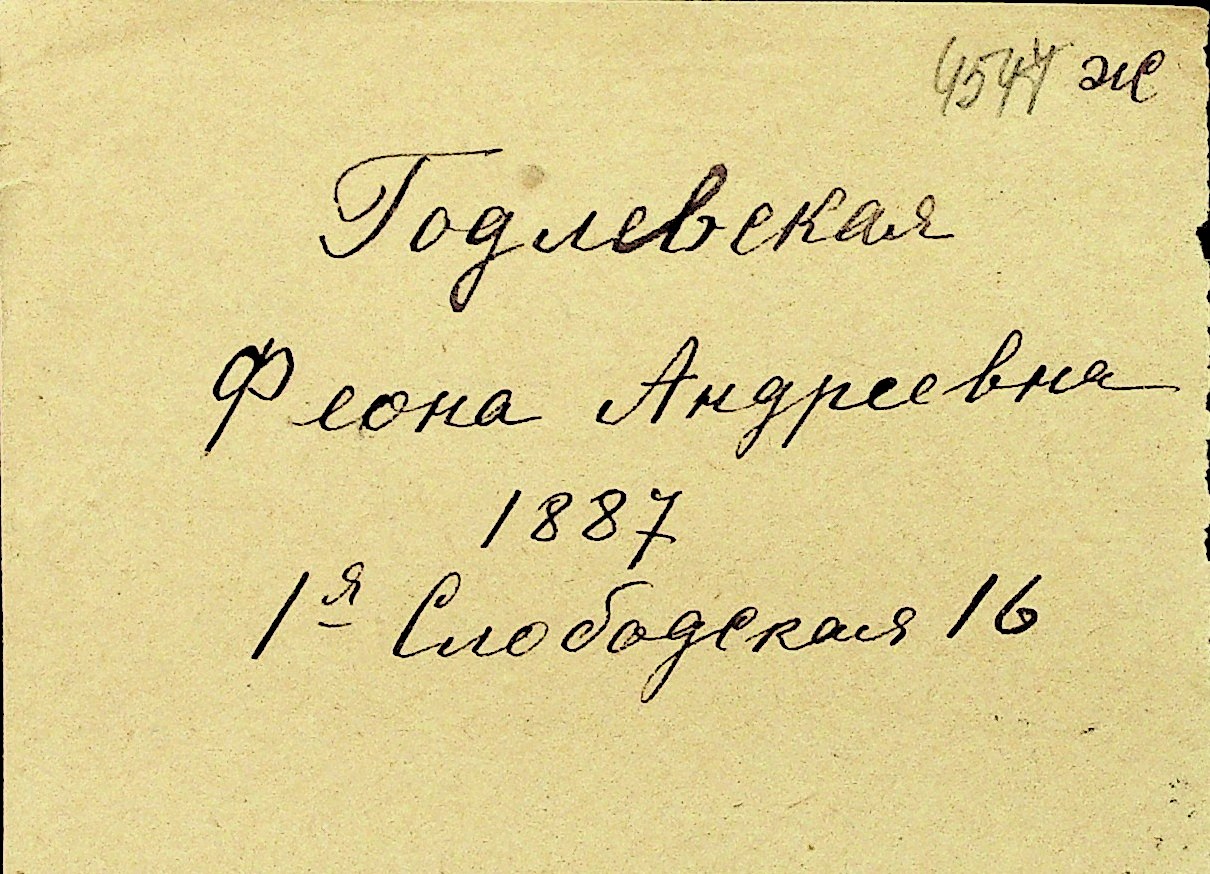 ж
Годлевская
Феона Андреевна
1887
1я Слободская 16